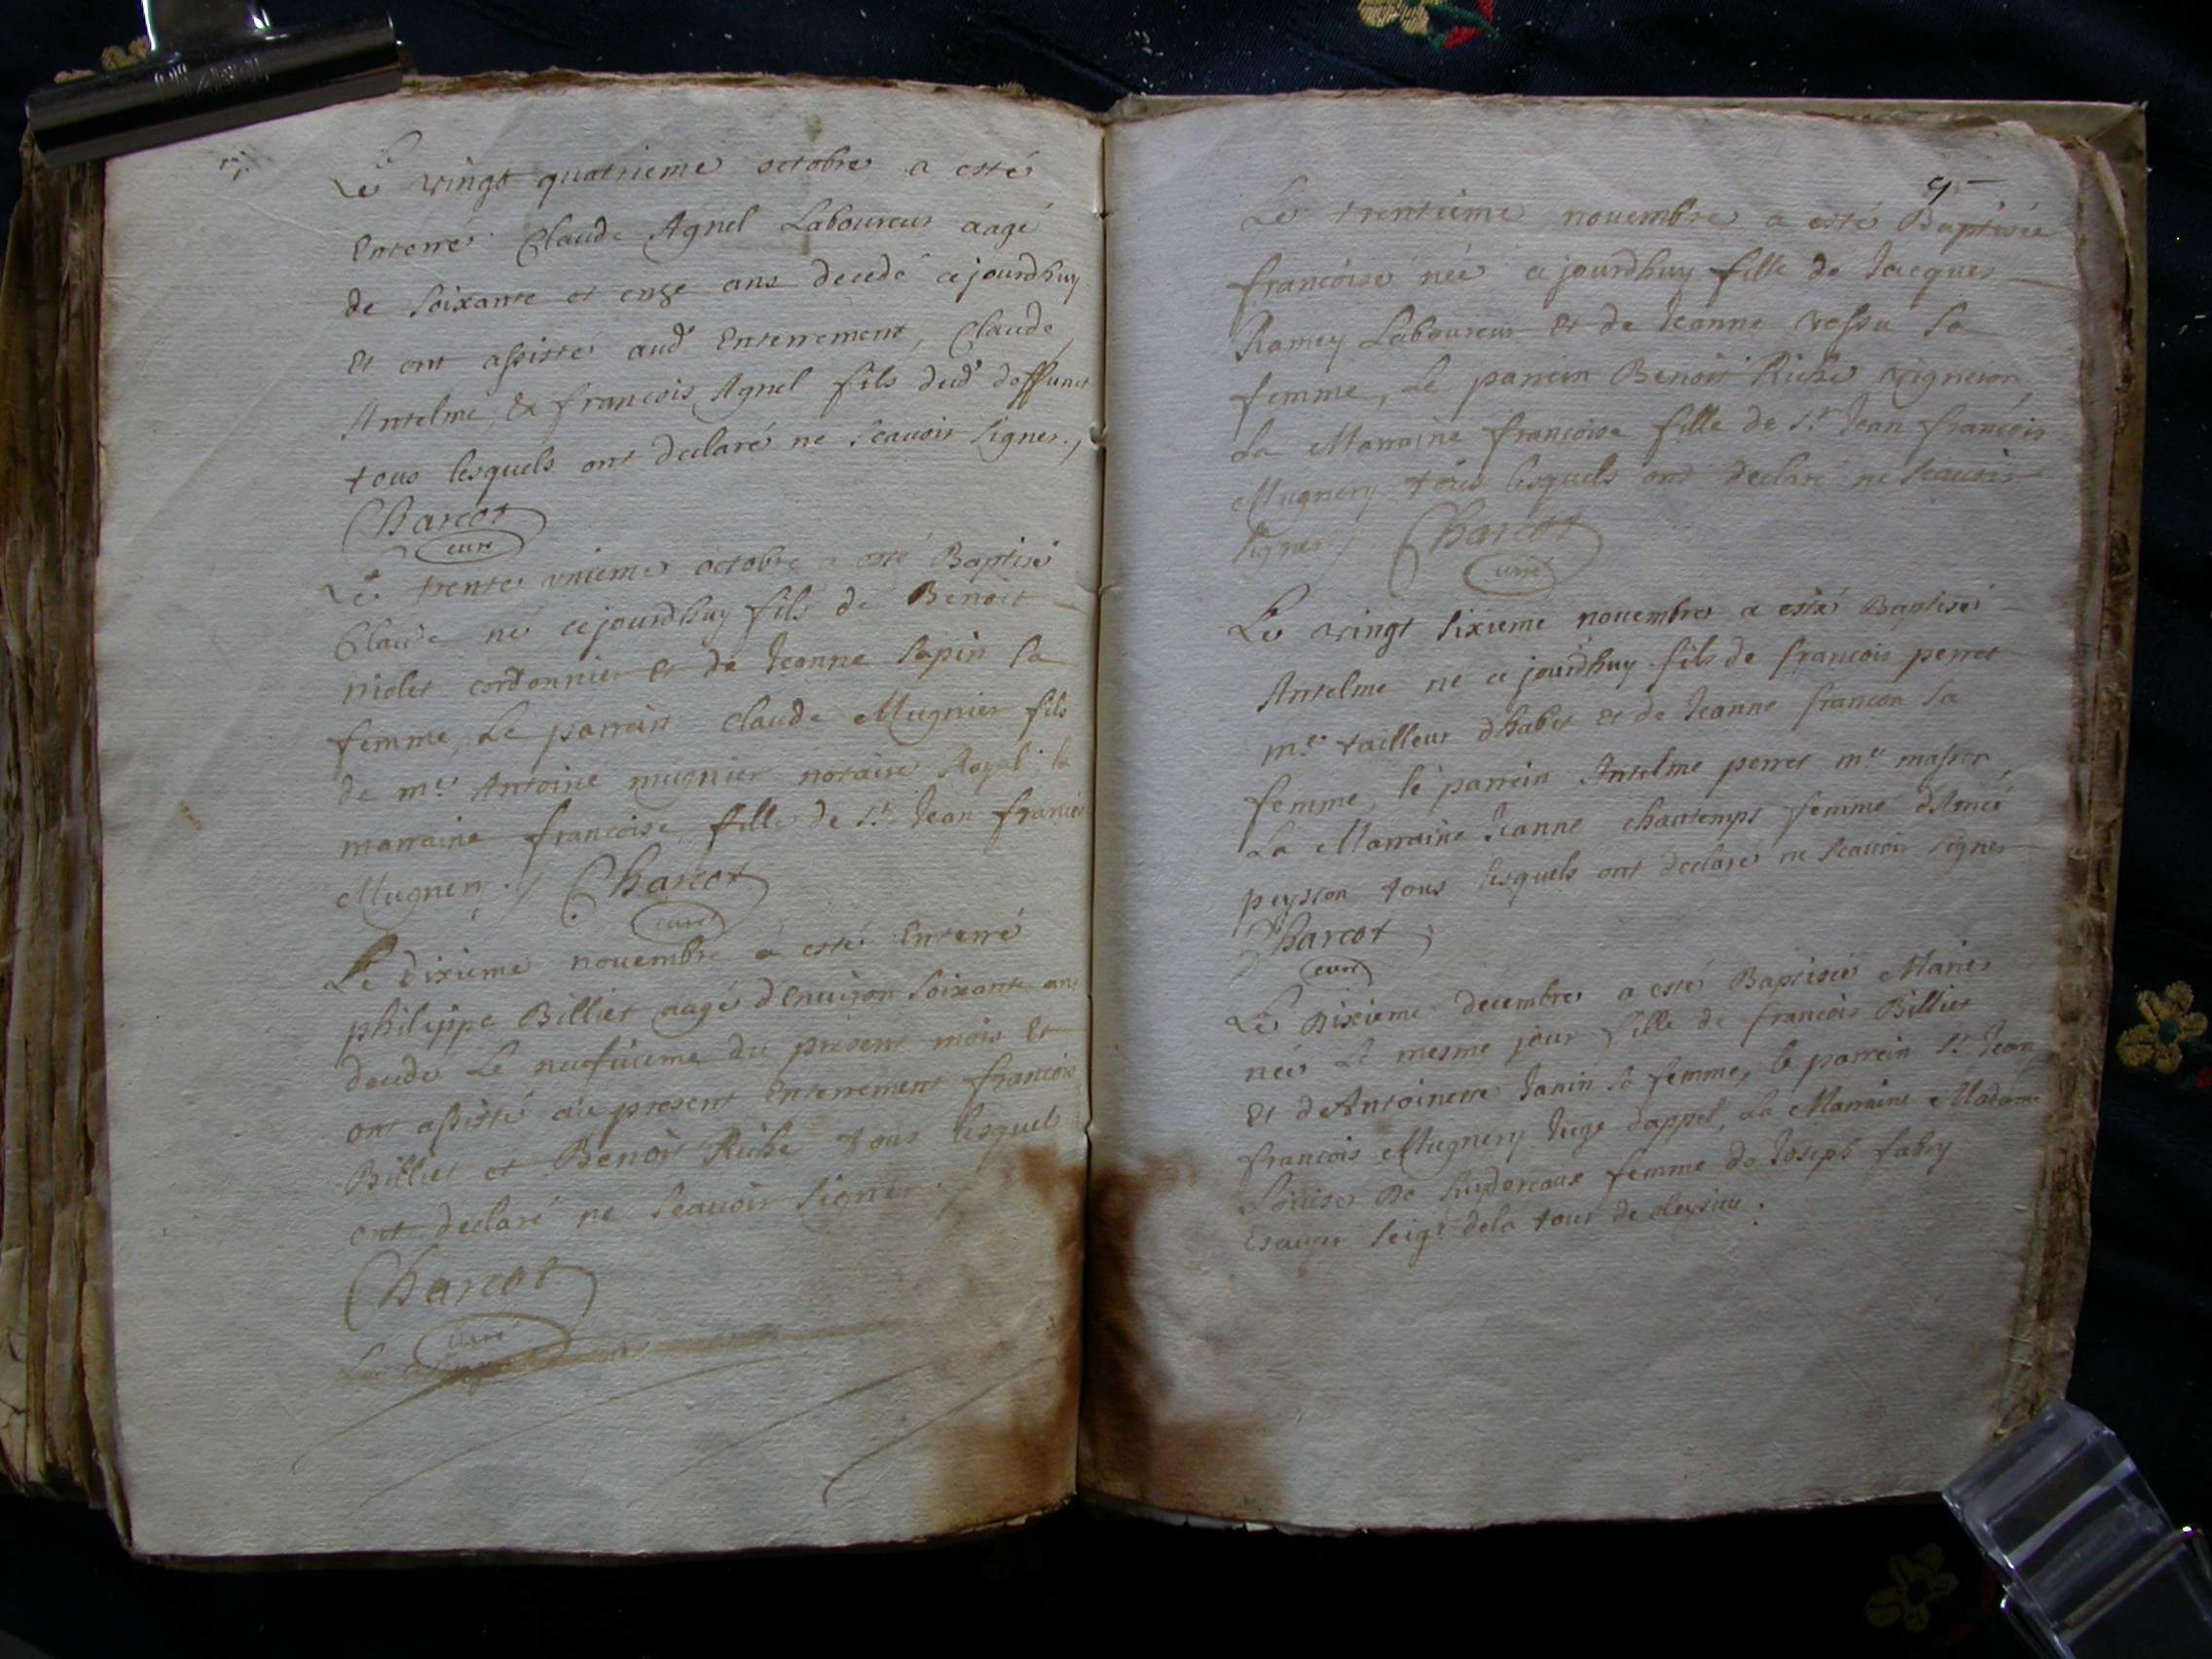 Le vingt quatrieme octobre a esté
Enterré Claude Agnel Laboureur aagé
de soixante et onze ans decedé cejourdhuy
Et ont assisté aud.t Enterrement, Claude,
Antelme, & francois Agnel fils dud.t deffunct
tous lesquels ont declaré ne scauoir signer./
Charcot
curé
Le trente unieme octobre a esté Baptisé
Claude né cejourdhuy fils de Benoit
niolet cordonnier et de Jeanne Sapin sa
femme, Le parrain Claude Mugnier fils
de m.e Antoine mugnier notaire Royal la
marraine francoise, fille de s.r Jean francois
Mugnery ./ Charcot
curé
Le dixieme nouembre a esté Enterré
philippe Billiet aagé d'enuiron soixante ans
decedé Le neufuieme du present mois Et
ont assisté au present Enterrement francois
Billiet et Benoit Riche tous lesquels
ont declaré ne scauoir signer ./
Charcot
curé
Le
9
Le trentieme nouembre a esté Baptisée
francoise née cejourdhuy fille de Jacques
Ramey Laboureur Et de Jeanne vessu sa
femme, Le parrein Benoit Riche vigneron,
La Marraine francoise fille de s.r Jean francois
Mugnery tous lesquels ont declaré ne scauoir
signer ./ Charcot
curé
Le vingt sixieme nouembre a esté Baptisé
Antelme né cejourdhuy fils de francois perret
m.e tailleur dhabit et de Jeanne francon sa
femme, le parrein Antelme perret m.e masson,
La Marraine Jeanne chautemps femme d'Amée
peysson tous lesquels ont declaré ne scauoir signer
Charcot
curé
Le Dixieme decembre a esté Baptisée Marie
née Le mesme jour fille de francois Billiet
Et d'Antoinette Janin sa femme, le parrein s.r Jean
francois Mugnery Juge dappel, La Marraine Madame
Louise De femme de Joseph fabry
Escuyer seig.r dela tour de cleysieu .